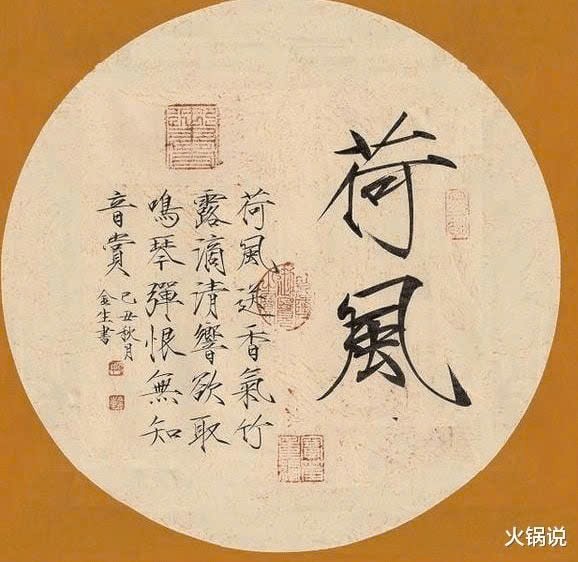 荷風
荷風送香氣竹
露滴清響欲取
鳴琴彈恨無知
音賞
己丑秋月
金生書
火锅说